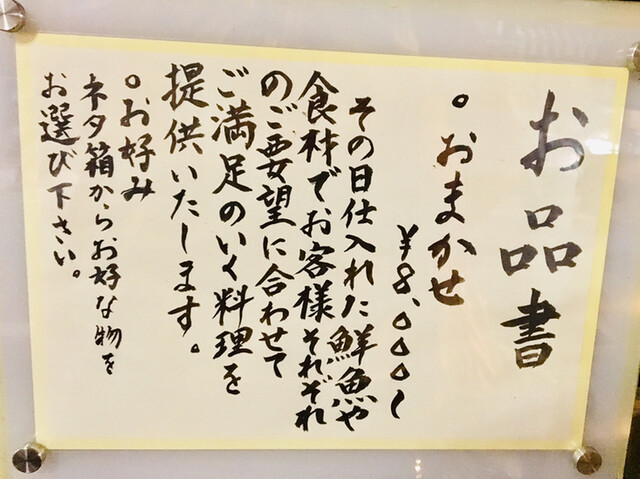 お品書
。おまかせ
¥8,000~
その日仕入れた鮮魚や
食材でお客様それぞれ
のご要望に合わせて
ご満足のいく料理を
提供いたします。
。お好み
ネタ箱からお好な物を
お選び下さい。